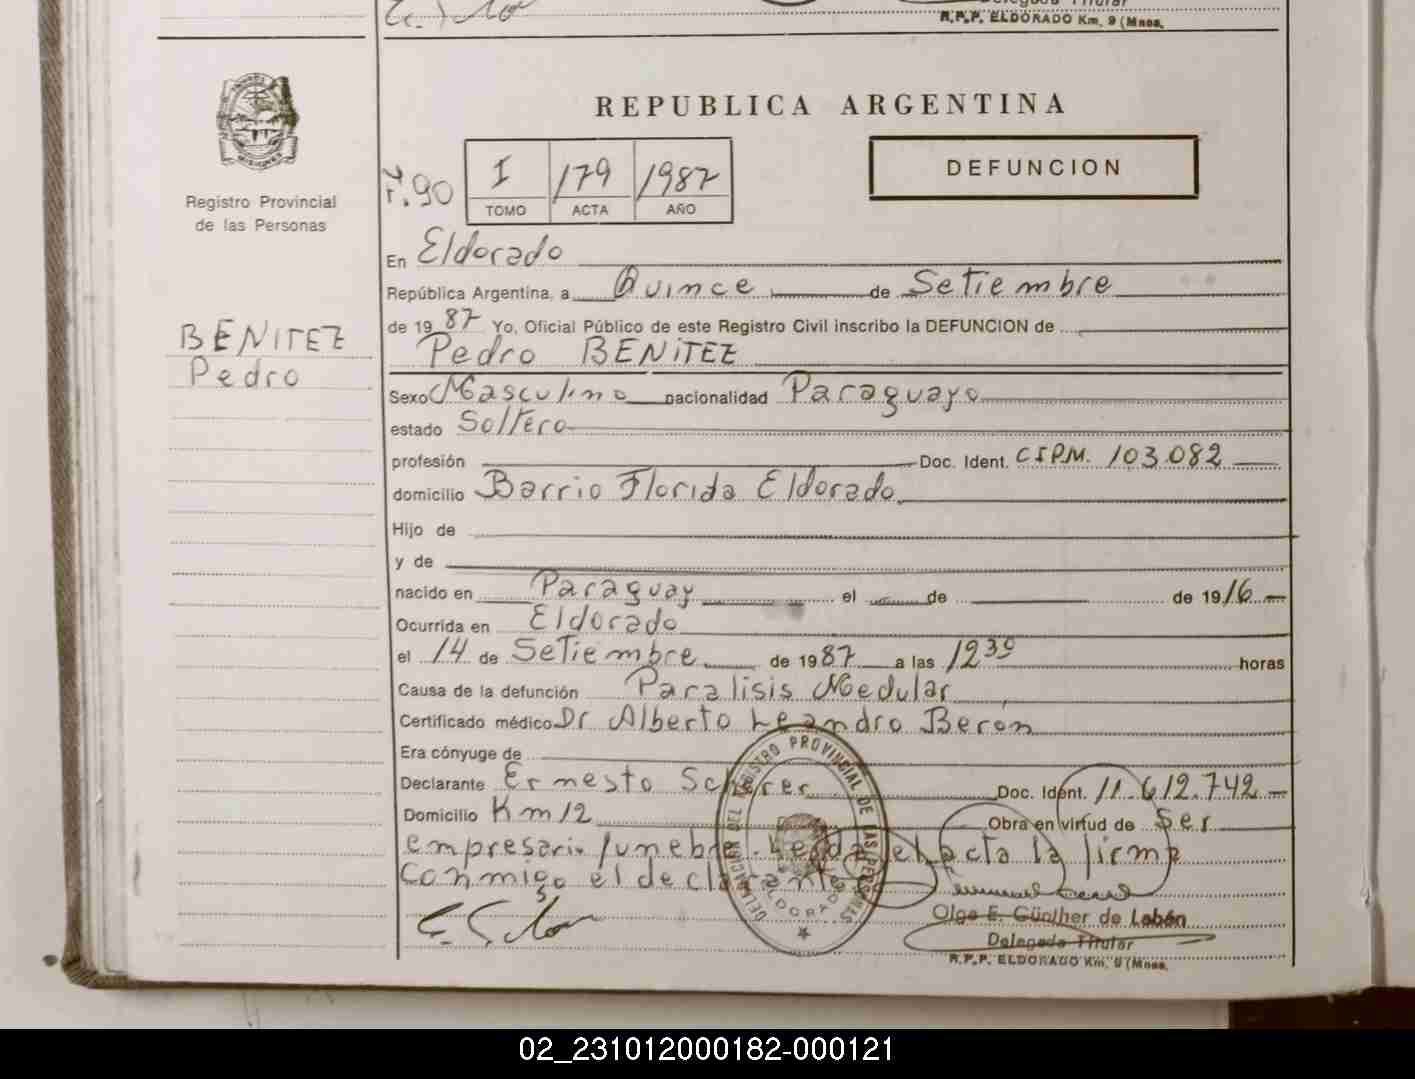 R.P.P. ELDORADO Km. 9 (Mnes.
REPUBLICA ARGENTINA
DEFUNCION
Registro Provincial
de las Personas
90
I 179 1987
TOMO ACTA AÑO
En Eldorado
República Argentina, a Quince de Setiembre
de 1987 Yo, Oficial Público de este Registro Civil inscribo la DEFUNCION de
Pedro BENITEZ
BENITEZ
Pedro
Sexo Masculino nacionalidad Paraguayo
estado Soltero
profesión Doc. Ident. CIPM. 103.082
domicilio Barrio Florida Eldorado
Hijo de
y de
nacido en Paraguay el de de 1916
Ocurrida en Eldorado
el 14 de Setiembre de 1987 a las 12 30 horas
Causa de la defunción Paralisis Medular
Certificado médico Dr Alberto Leandro Berón
Era cónyuge de
Declarante Ernesto Doc. Ident. 11.612.742
Domicilio Km 12 Obra en virtud de Ser
empresario funebre. Leida el acta la firma
conmigo el declarante
DELEGACION DEL REGISTRO PROVINCIAL DE LAS PERSONAS
ELDORADO
Olga E. Günther de Labán
Delegada Titular
R.P.P. ELDORADO Km. 9 (Mnes.
02_231012000182-000121